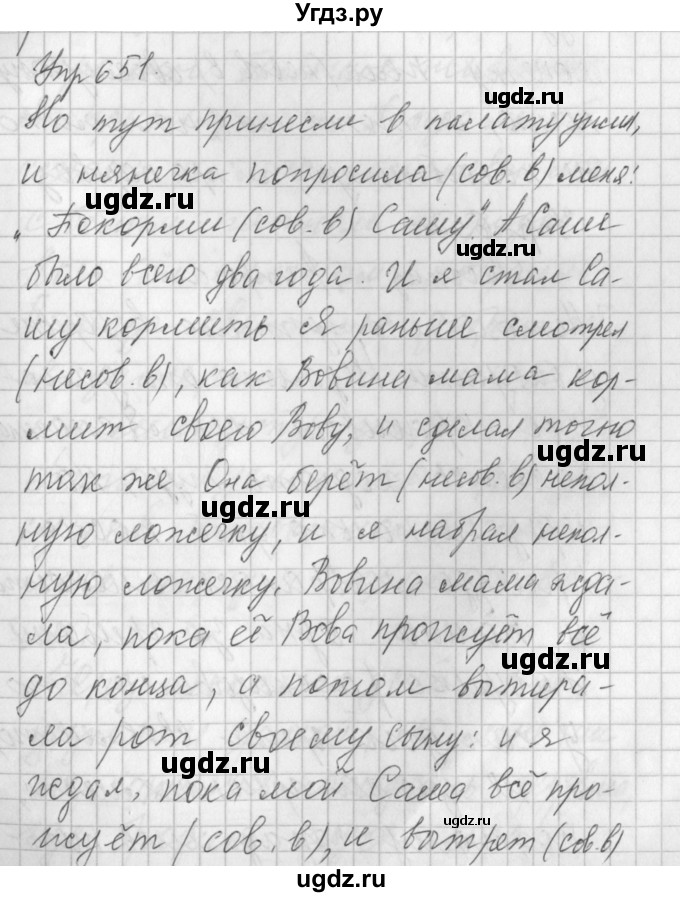 Угдз.ру
Упр 651.
Но тут принесли в палату ужин,
и нянечка попросила (сов. в) меня:
„Покорми (сов. в) Сашу." А Саше
было всего два года. И я стал Са-
шу кормить Я раньше смотрел
(несов. в), как Вовина мама кор-
мит своего Вову, и сделал точно
так же Она берёт (несов. в) непол-
ную ложечку, и я набрал непол-
ную ложечку. Вовина мама жда-
ла, пока её Вова прожуёт всё
до конца, а потом вытира-
ла рот своему сыну: и я
ждал, пока мой Саша всё про-
жуёт (сов. в), и вытрет (сов. в)
ugdz.ru
ugdz.ru
ugdz.ru
ugdz.ru
ugdz.ru
ugdz.ru
ugdz.ru
ugdz.ru
ugdz.ru